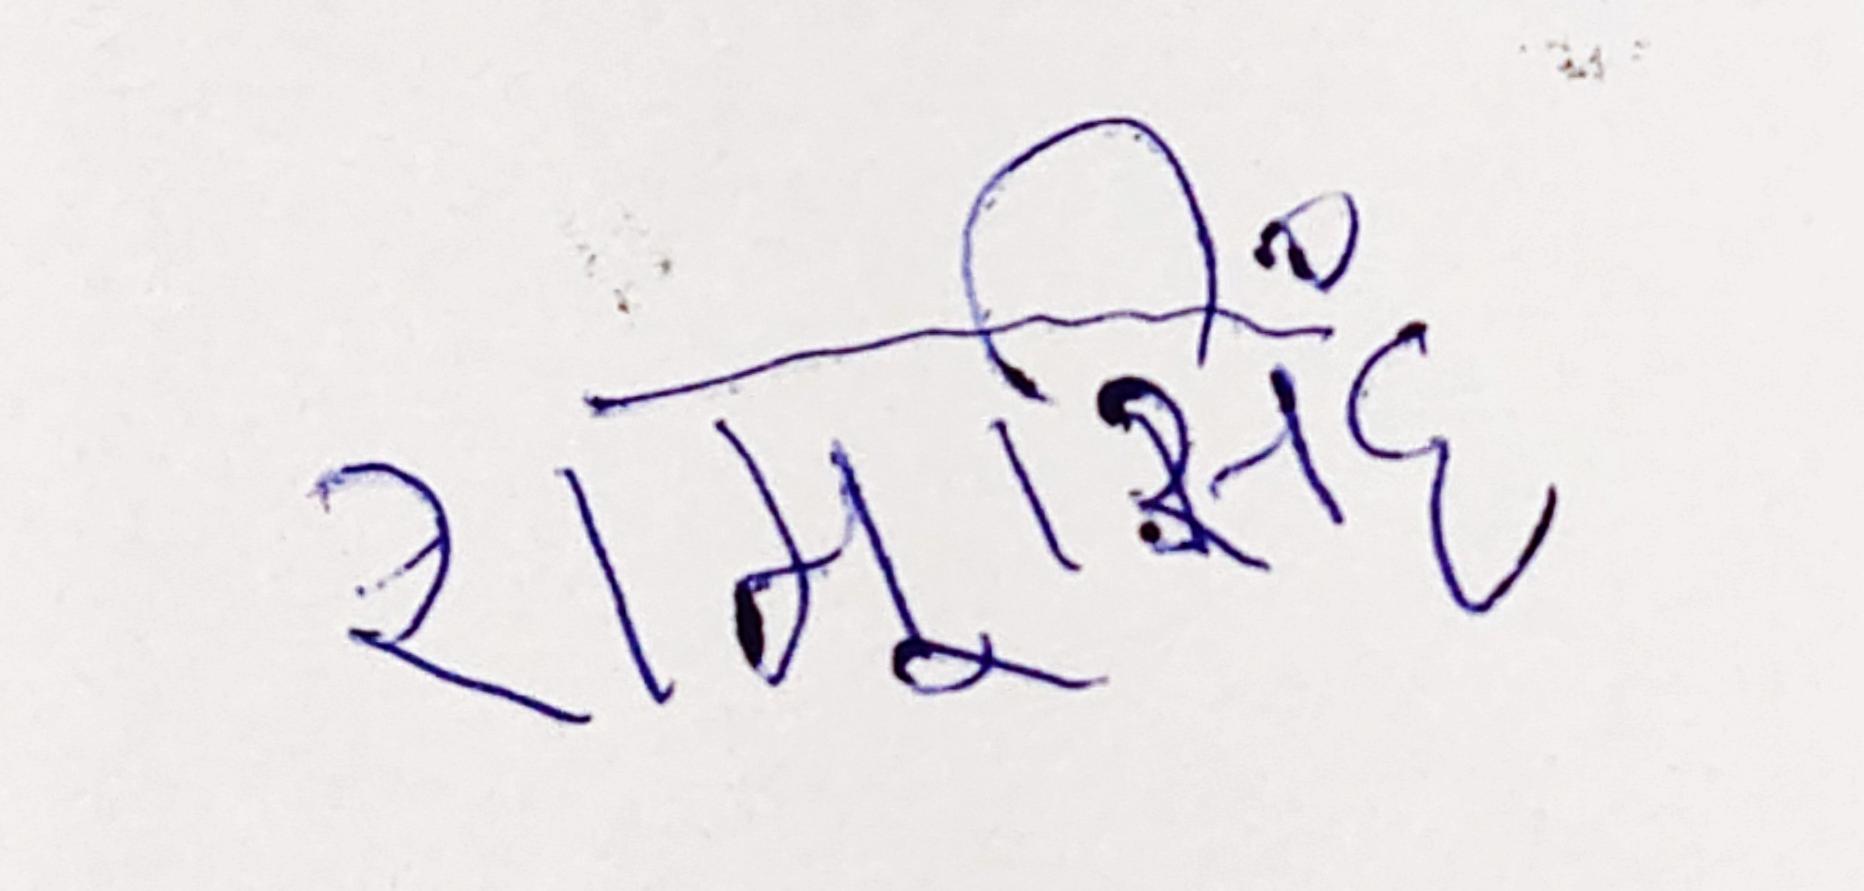 रामुसिंह